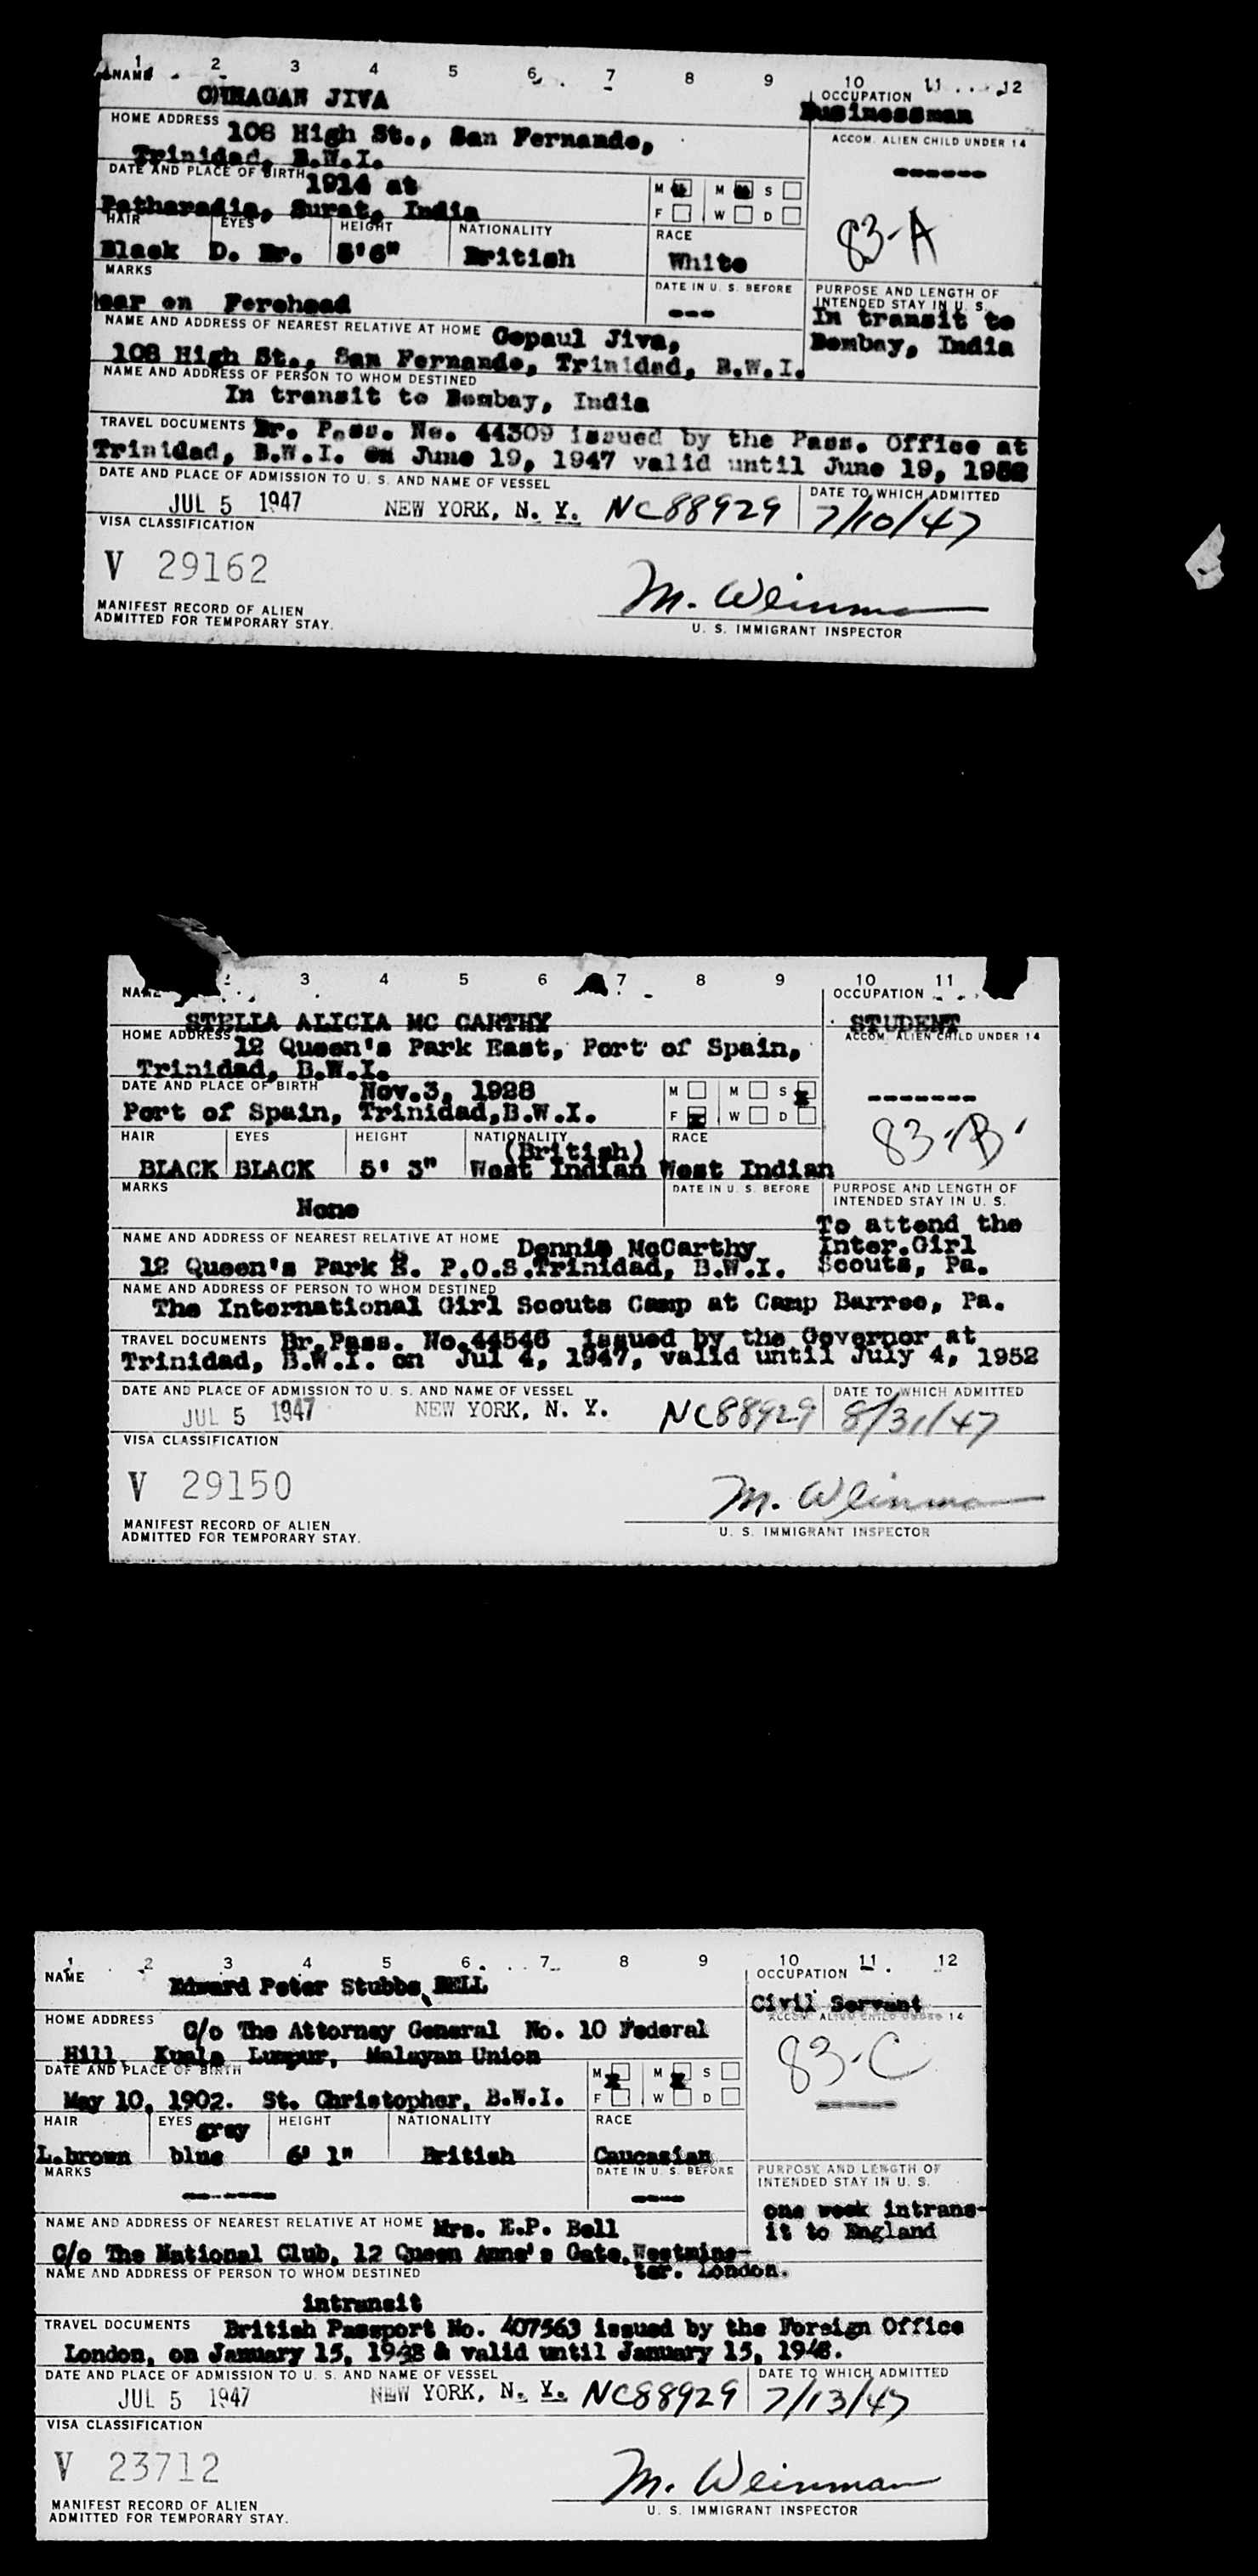 1 2 3 4 5 6 7 8 9 10 11 12
NAME OCCUPATION
CHHAGAN JIVA Businessman
HOME ADDRESS 108 High St., San Fernando,
Trinidad, B.W.I.
ACCOM. ALIEN CHILD UNDER 14
------
DATE AND PLACE OF BIRTH 1914 at
Patharadia, Surat, India
M M S
F W D
83-A
HAIR EYES HEIGHT NATIONALITY RACE
Black D. Br. 5'6" British White
MARKS DATE IN U. S. BEFORE
ear on Forehead ---
PURPOSE AND LENGTH OF
INTENDED STAY IN U. S.
In transit to
Bombay, India
NAME AND ADDRESS OF NEAREST RELATIVE AT HOME Gopaul Jiva,
108 High St., San Fernando, Trinidad, B.W.I.
NAME AND ADDRESS OF PERSON TO WHOM DESTINED
In transit to Bombay, India
TRAVEL DOCUMENTS Br. Pass. No. 44309 issued by the Pass. Office at
Trinidad, B.W.I. on June 19, 1947 valid until June 19, 1952
DATE AND PLACE OF ADMISSION TO U. S. AND NAME OF VESSEL DATE TO WHICH ADMITTED
JUL 5 1947 NEW YORK, N. Y. NC88929 7/10/47
VISA CLASSIFICATION
V 29162
M. Weinman
MANIFEST RECORD OF ALIEN
ADMITTED FOR TEMPORARY STAY.
U. S. IMMIGRANT INSPECTOR
3 4 5 6 7 8 9 10 11
OCCUPATION
STELLA ALICIA MC CARTHY STUDENT
HOME ADDRESS 12 Queen's Park East, Port of Spain,
Trinidad, B.W.I.
ACCOM. ALIEN CHILD UNDER 14
-------
DATE AND PLACE OF BIRTH Nov.3, 1928
Port of Spain, Trinidad,B.W.I.
M M S
F W D
83-B
HAIR EYES HEIGHT NATIONALITY RACE
(British)
BLACK BLACK 5' 3" West Indian West Indian
MARKS DATE IN U. S. BEFORE
None
PURPOSE AND LENGTH OF
INTENDED STAY IN U. S.
To attend the
Inter.Girl
Scouts, Pa.
NAME AND ADDRESS OF NEAREST RELATIVE AT HOME Dennis McCarthy
12 Queen's Park E. P.O.S.Trinidad, B.W.I.
NAME AND ADDRESS OF PERSON TO WHOM DESTINED
The International Girl Scouts Camp at Camp Barree, Pa.
TRAVEL DOCUMENTS Br.Pass. No.44546 issued by the Governor at
Trinidad, B.W.I. on Jul 4, 1947, valid until July 4, 1952
DATE AND PLACE OF ADMISSION TO U. S. AND NAME OF VESSEL DATE TO WHICH ADMITTED
JUL 5 1947 NEW YORK, N. Y. NC88929 8/31/47
VISA CLASSIFICATION
V 29150
M. Weinman
MANIFEST RECORD OF ALIEN
ADMITTED FOR TEMPORARY STAY.
U. S. IMMIGRANT INSPECTOR
1 2 3 4 5 6 7 8 9 10 11 12
NAME OCCUPATION
Edward Peter Stubbs BELL Civil Servant
HOME ADDRESS C/o The Attorney General No. 10 Federal
Hill Kuala Lumpur, Malayan Union
ACCOM. ALIEN CHILD UNDER 14
83-C
------
DATE AND PLACE OF BIRTH
May 10, 1902. St. Christopher, B.W.I.
M M S
F W D
HAIR EYES HEIGHT NATIONALITY RACE
gray
L.brown blue 6' 1" British Caucasian
MARKS DATE IN U. S. BEFORE
------- ----
PURPOSE AND LENGTH OF
INTENDED STAY IN U. S.
one week intrans-
it to England
NAME AND ADDRESS OF NEAREST RELATIVE AT HOME Mrs. E.P. Bell
C/o The National Club, 12 Queen Anne's Gate,Westmins-
ter. London.
NAME AND ADDRESS OF PERSON TO WHOM DESTINED
intransit
TRAVEL DOCUMENTS British Passport No. 407563 issued by the Foreign Office
London, on January 15, 1938 & valid until January 15, 1948.
DATE AND PLACE OF ADMISSION TO U. S. AND NAME OF VESSEL DATE TO WHICH ADMITTED
JUL 5 1947 NEW YORK, N. Y. NC88929 7/13/47
VISA CLASSIFICATION
V 23712
M. Weinman
MANIFEST RECORD OF ALIEN
ADMITTED FOR TEMPORARY STAY.
U. S. IMMIGRANT INSPECTOR